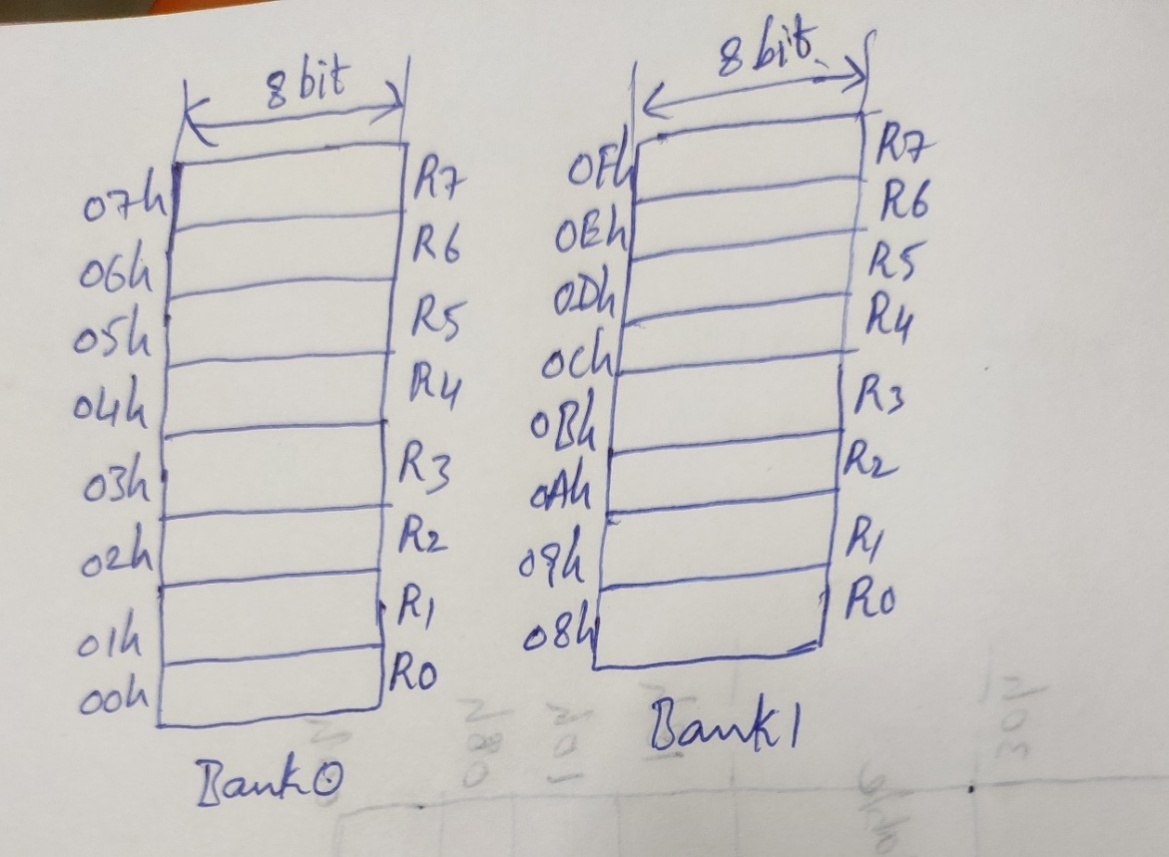 8 bit
07h R7
06h R6
05h R5
04h R4
03h R3
02h R2
01h R1
00h R0
Bank 0
8 bit
0Fh R7
0Eh R6
0Dh R5
0Ch R4
0Bh R3
0Ah R2
09h R1
08h R0
Bank 1
08h
10h
30h